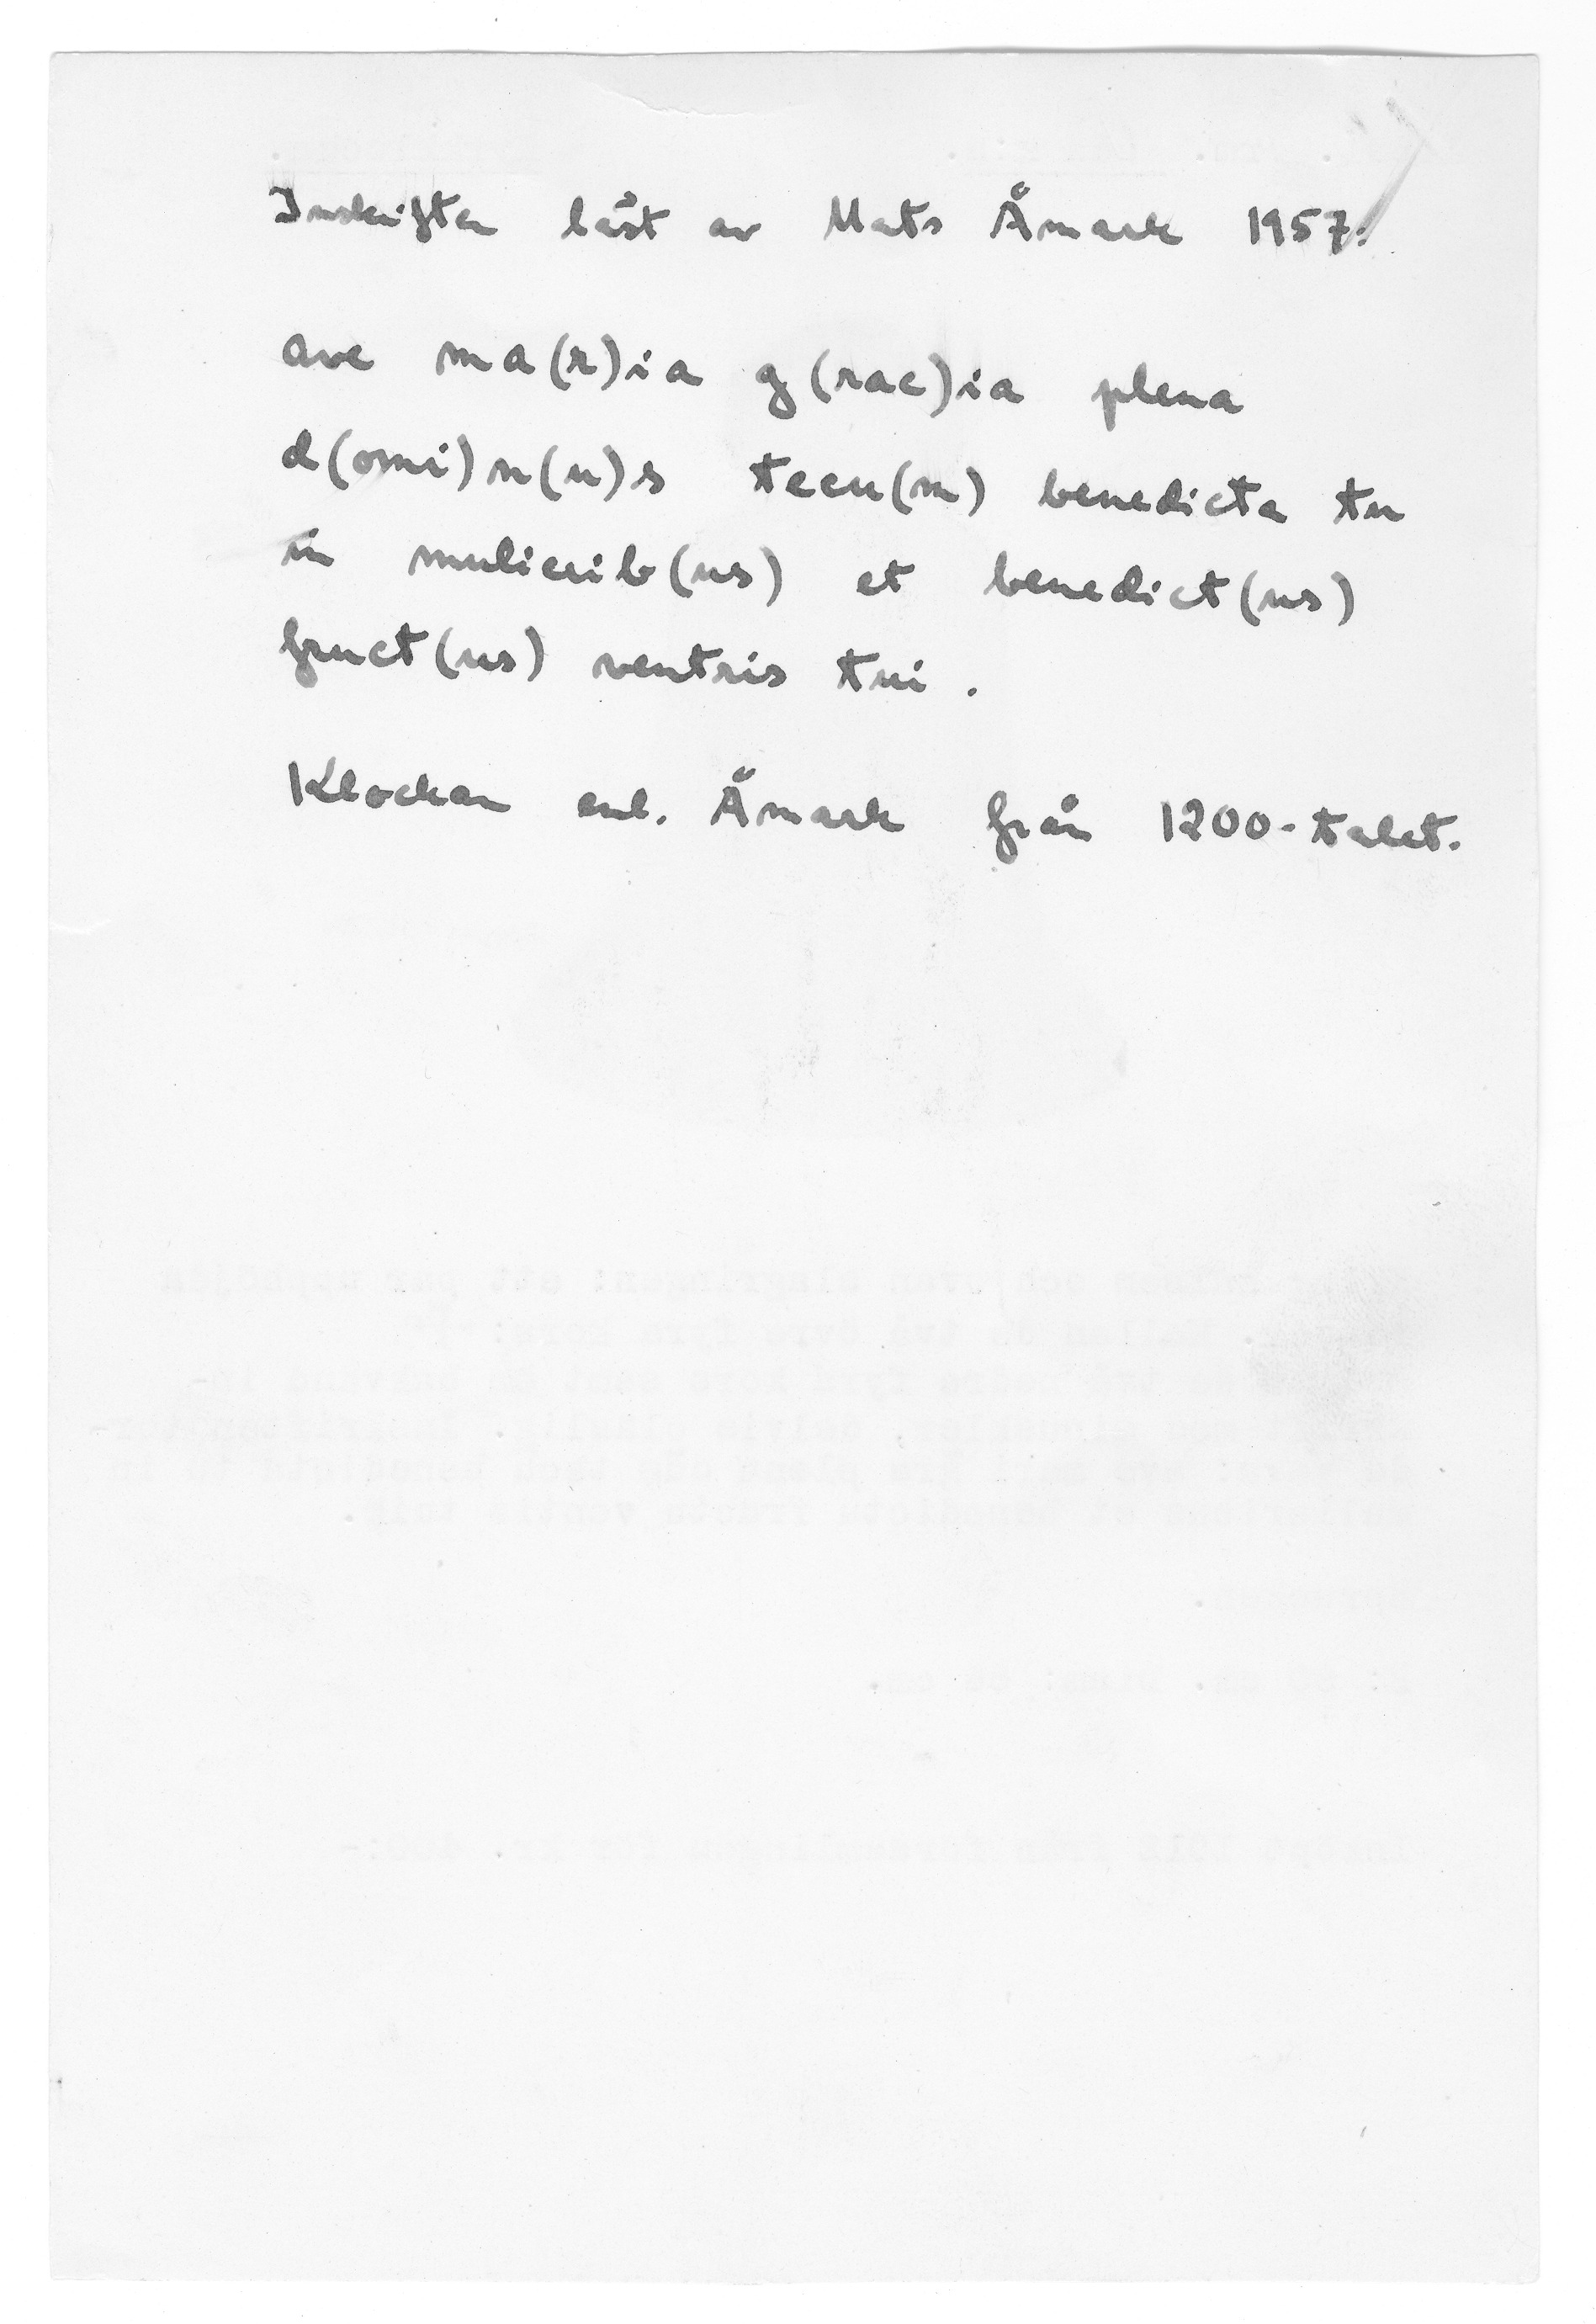 Inskriften läst av Mats Åmark 1957:
ave ma(r)ia g(rac)ia plena
d(omi)n(u)s tecu(m) benedicta tu
in mulierib(us) et benedict(us)
fruct(us) ventris tui.
Klockan enl. Åmark från 1200-talet.